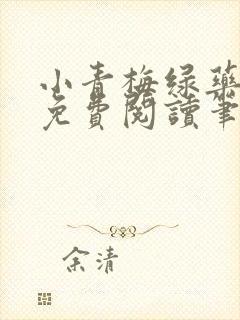 小青梅绿药
免費閱讀筆
余清